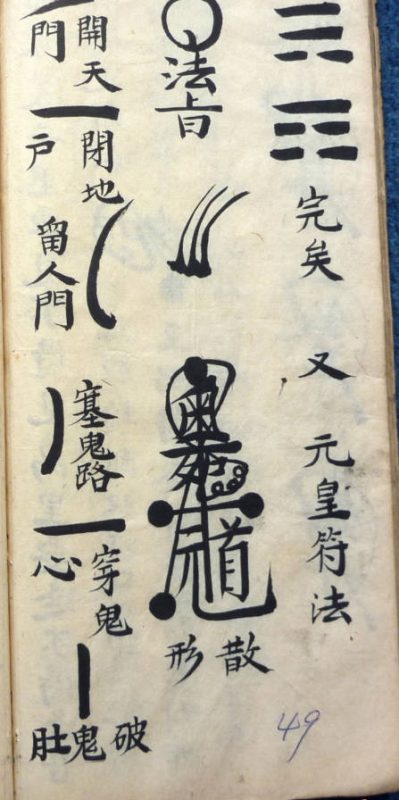 完矣 又 元皇符法
法旨
散形
開天門
閉地戶
留人門
塞鬼路
穿鬼心
破鬼肚
49